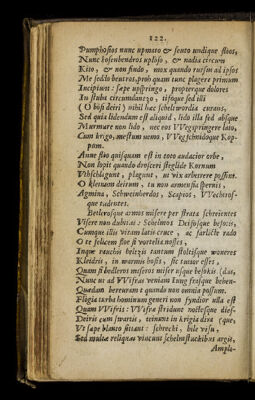 122.
Pumphosios nunc upmato & sento undique flöos,
Nunc hosenbendros uplöso, & nadis circum
Kito, & non findo, mox quando rursum ad ipsos
Me sedlo beutros, proh quam tunc plagere primum
Incipiunt: sæpe upspringo, propterque dolores
In stuba circumdanzo, tisque sed illi
(O bösi deiri) nihil hæc schelmordia curant,
Sed quia lidendum est aliquid, lido illa sed absque
Murmure non lido, nec eos VVegspringere lato,
Cum krigo, mestum uemo, VVegschmidoque Kop-
pam.
Anne suo quisquam est in toto audacior orbe,
Non lopit quando duysceri stegslde Kornum
Uthschlagunt, plagunt, ut vix arberrere possint.
O kleinam deirum, tu non armeusia spernis,
Agmina, Schweinherdos, Scapios, VVechtros-
que tudentes.
Betlerosque armos misere per strata schreientes
Visere non dubitas: Schelmos Deisosque besocis,
Cumque illis vitam latis cruce, ac sarlicte rado
O te felicem slöe si vortelia nosses,
Inque rauchis belzgis tantum stoltisque woneres
Kleidris, in warmis hosis, sic tutior esses,
Quam si bedleros miseros miser usque besokis (das,
Nunc ut ad VVisras veniam Iung frasque behen-
Quædam herreuram t quando non omnia possum.
Flögia turba hominum generi non fyndior ulla est
Quam VVifris: VVifræ stridunt noctesque dies-
Deiris cum swartis, teinunt in krigia diræ (que,
Ut sæpe blauco sittant: schrecki, bile visu,
Sed multæ reliquas vincunt schelmstuckibus argis,
Amplæ-